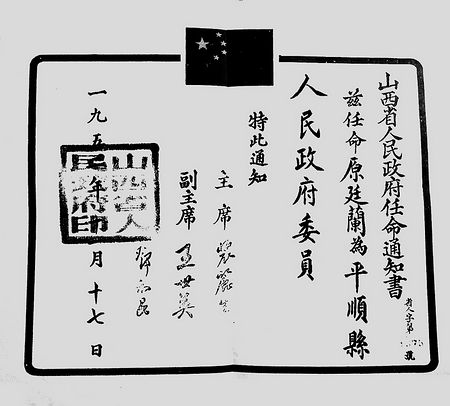 山西省人民政府任命通知書
省人字第
號
兹任命原廷蘭為平順縣
人民政府委員
特此通知
主席
副主席 王世英
一九五 年 月十七日
山西省人民政府印